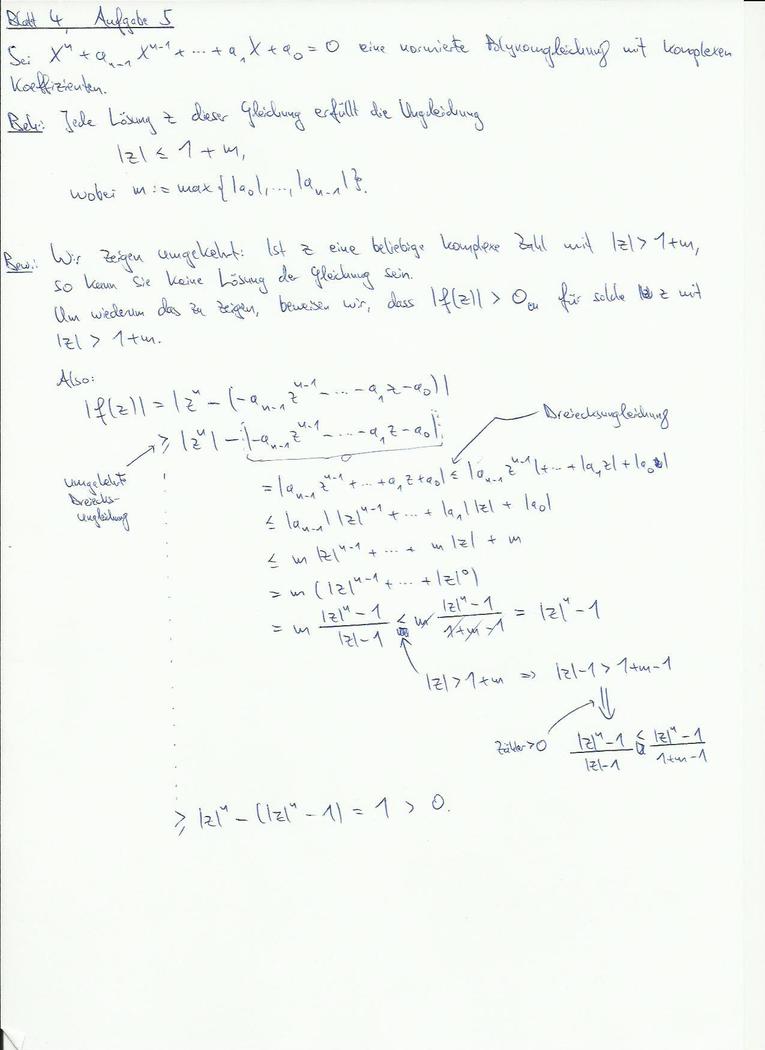 Blatt 4, Aufgabe 5
Sei Xⁿ + aₙ₋₁ Xⁿ⁻¹ + ⋯ + a₁ X + a₀ = 0 eine normierte Polynomgleichung mit komplexen
Koeffizienten.
Beh.: Jede Lösung z dieser Gleichung erfüllt die Ungleichung
|z| ≤ 1 + m,
wobei m := max{|a₀|, …, |aₙ₋₁|}.
Bew.: Wir zeigen umgekehrt: Ist z eine beliebige komplexe Zahl mit |z| > 1+m,
so kann sie keine Lösung der Gleichung sein.
Um wiederum das zu zeigen, beweisen wir, dass |f(z)| > 0 für solche z mit
|z| > 1+m.
Also:
|f(z)| = |zⁿ − (−aₙ₋₁ zⁿ⁻¹ − ⋯ − a₁ z − a₀)|
≥ |zⁿ| − |−aₙ₋₁ zⁿ⁻¹ − ⋯ − a₁ z − a₀|
Dreiecksungleichung
umgekehrte
Dreiecks-
ungleichung
= |aₙ₋₁ zⁿ⁻¹ + ⋯ + a₁ z + a₀| ≤ |aₙ₋₁ zⁿ⁻¹| + ⋯ + |a₁ z| + |a₀|
≤ |aₙ₋₁| |z|ⁿ⁻¹ + ⋯ + |a₁| |z| + |a₀|
≤ m |z|ⁿ⁻¹ + ⋯ + m |z| + m
= m (|z|ⁿ⁻¹ + ⋯ + |z|⁰)
= m (|z|ⁿ − 1)/(|z| − 1) ≤ m (|z|ⁿ − 1)/(1 + m − 1) = |z|ⁿ − 1
|z| > 1+m ⇒ |z|−1 > 1+m−1
⇓
Zähler > 0 (|z|ⁿ − 1)/(|z| − 1) ≤ (|z|ⁿ − 1)/(1 + m − 1)
≥ |z|ⁿ − (|z|ⁿ − 1) = 1 > 0.